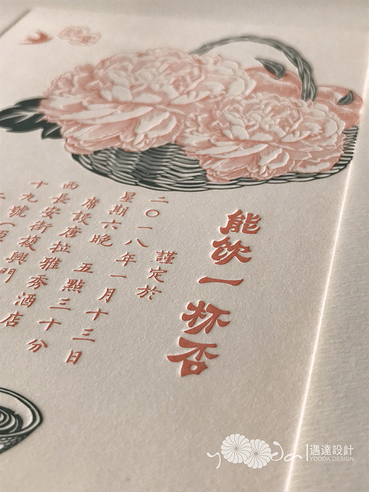 能飲一杯否
謹定於
二〇一八年一月十三日
星期六晚 五點三十分
席設唐拉雅秀酒店
西長安街復興門
十九號
yooda
遇達設計
YOODA DESIGN